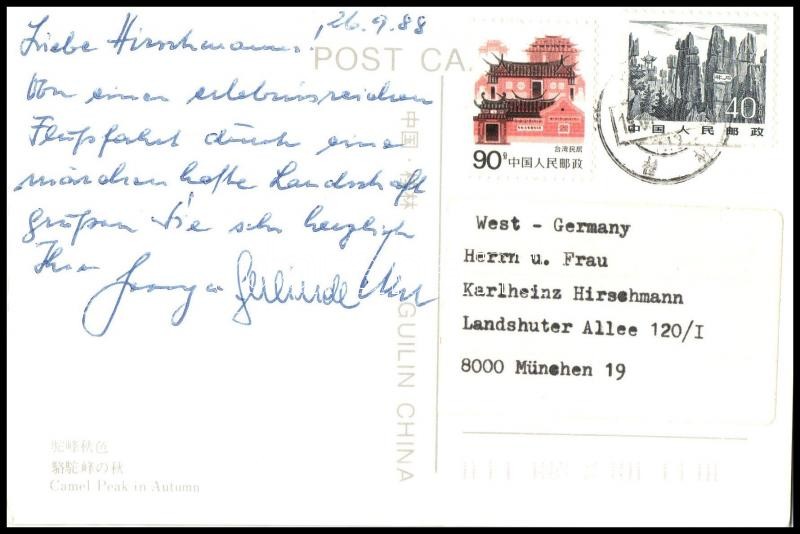 26.9.88
Liebe Hirschmanns.
Von einer erlebnisreichen
Flußfahrt durch eine
märchenhafte Landschaft
grüßen Sie sehr herzlich
Ihre
Gerlinde
POST CA
中国·桂林
GUILIN CHINA
台湾民居
90分 中国人民邮政
40分
中国人民邮政
West - Germany
Herrn u. Frau
Karlheinz Hirschmann
Landshuter Allee 120/I
8000 München 19
驼峰秋色
駱駝峰の秋
Camel Peak in Autumn